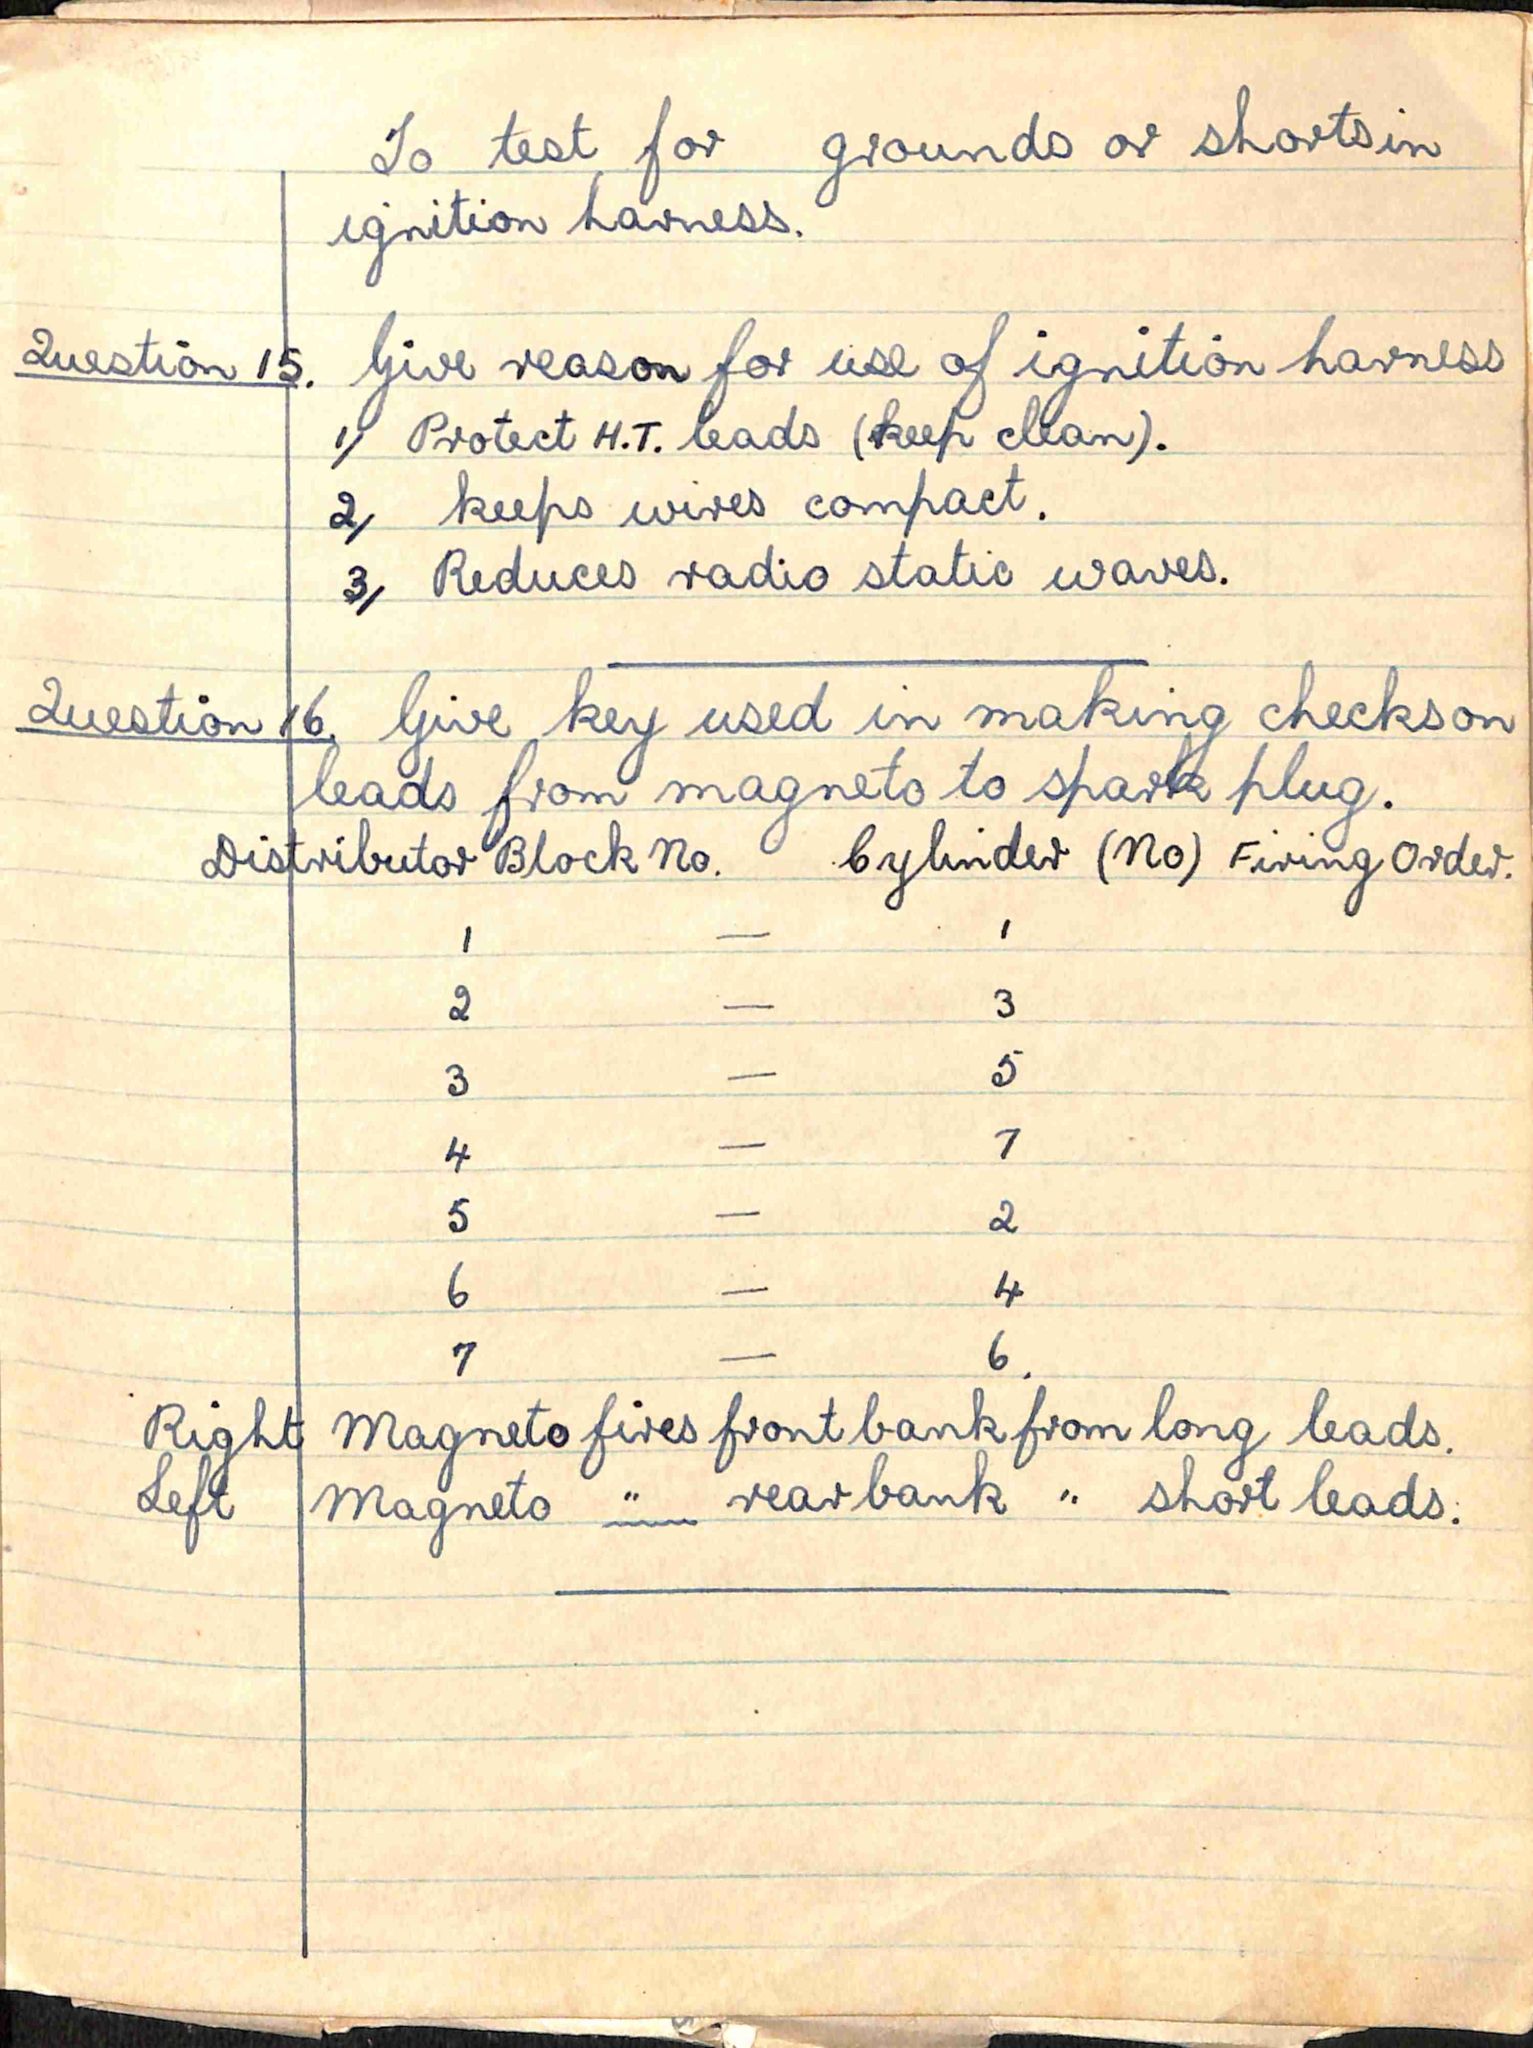 To test for grounds or shorts in
ignition harness.
Question 15. Give reason for use of ignition harness
1, Protect H.T. leads (keep clean).
2, keeps wires compact.
3, Reduces radio static waves.
Question 16. Give key used in making checks on
leads from magneto to spark plug.
Distributor Block No. Cylinder (No) Firing Order.
1 — 1
2 — 3
3 — 5
4 — 7
5 — 2
6 — 4
7 — 6.
Right Magneto fires front bank from long leads.
Left Magneto " rear bank " short leads.